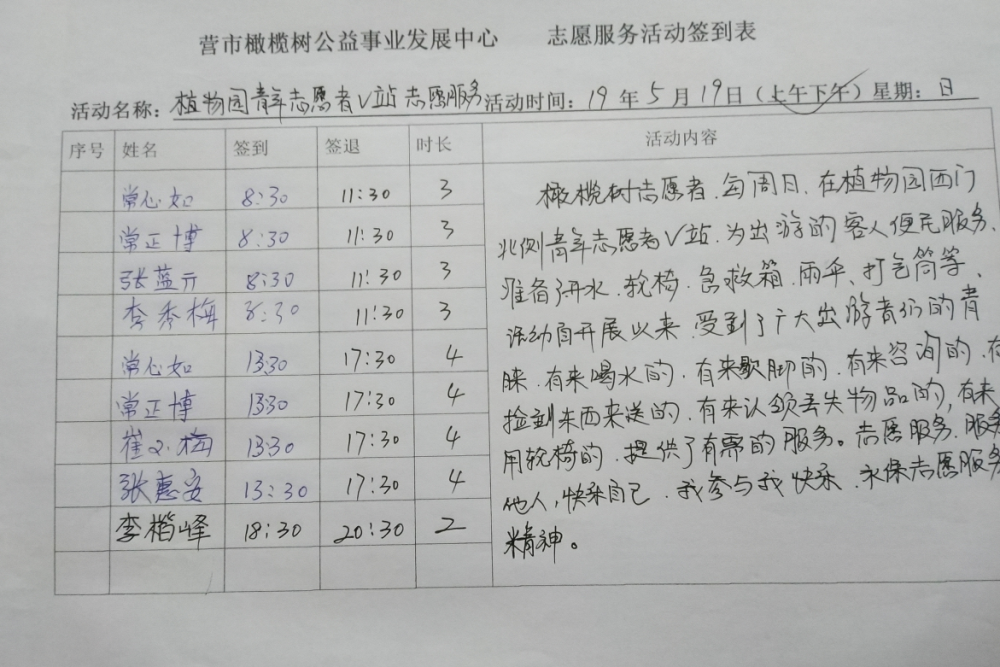 营市橄榄树公益事业发展中心 志愿服务活动签到表
活动名称：植物园青年志愿者V站志愿服务 活动时间：19年5月19日（上午下午）星期：日
序号 姓名 签到 签退 时长 活动内容
常心如 8:30 11:30 3
常正博 8:30 11:30 3
张蓝亓 8:30 11:30 3
李秀梅 8:30 11:30 3
常心如 13:30 17:30 4
常正博 13:30 17:30 4
崔义梅 13:30 17:30 4
张惠安 13:30 17:30 4
李楷峰 18:30 20:30 2
橄榄树志愿者、每周日、在植物园西门
北侧青年志愿者V站、为出游的客人便民服务、
准备了开水、轮椅、急救箱、雨伞、打气筒等、
活动自开展以来、受到了广大出游者们的青
睐、有来喝水的、有来歇脚的、有来咨询的、有
捡到东西来送的、有来认领丢失物品的，有来
用轮椅的、提供了有需的服务。志愿服务、服务
他人，快乐自己、我参与我快乐、永保志愿服务
精神。